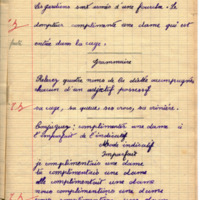 gardiens sont armés d'une fourche. Le
dompteur complimente une dame qui est
entrée dans la cage.
Grammaire
Relevez quatre noms de la dictée accompagnés
chacun d'un adjectif possessif
sa cage, sa queue, ses crocs, sa crinière.
Conjuguez : complimenter une dame à
l'imparfait de l'indicatif
Mode indicatif
Imparfait
je complimentais une dame
tu complimentais une dame
elle complimentait une dame
nous complimentions une dame